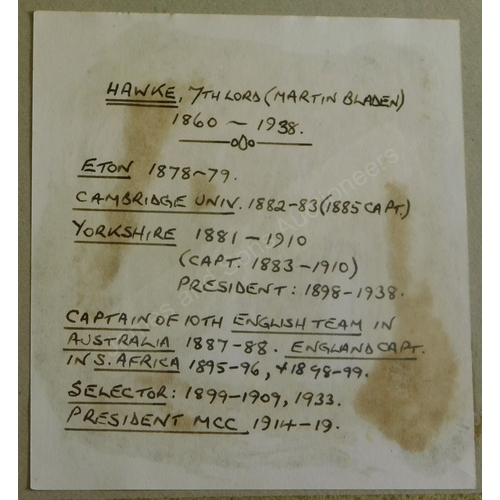 HAWKE, 7TH LORD (MARTIN BLADEN)
1860 ~ 1938.
ETON 1878~79.
CAMBRIDGE UNIV. 1882-83 (1885 CAPT.)
YORKSHIRE 1881-1910
(CAPT. 1883-1910)
PRESIDENT: 1898-1938.
CAPTAIN OF 10TH ENGLISH TEAM IN
AUSTRALIA 1887-88. ENGLAND CAPT.
IN S. AFRICA 1895-96, + 1898-99.
SELECTOR: 1899-1909, 1933.
PRESIDENT MCC 1914-19.